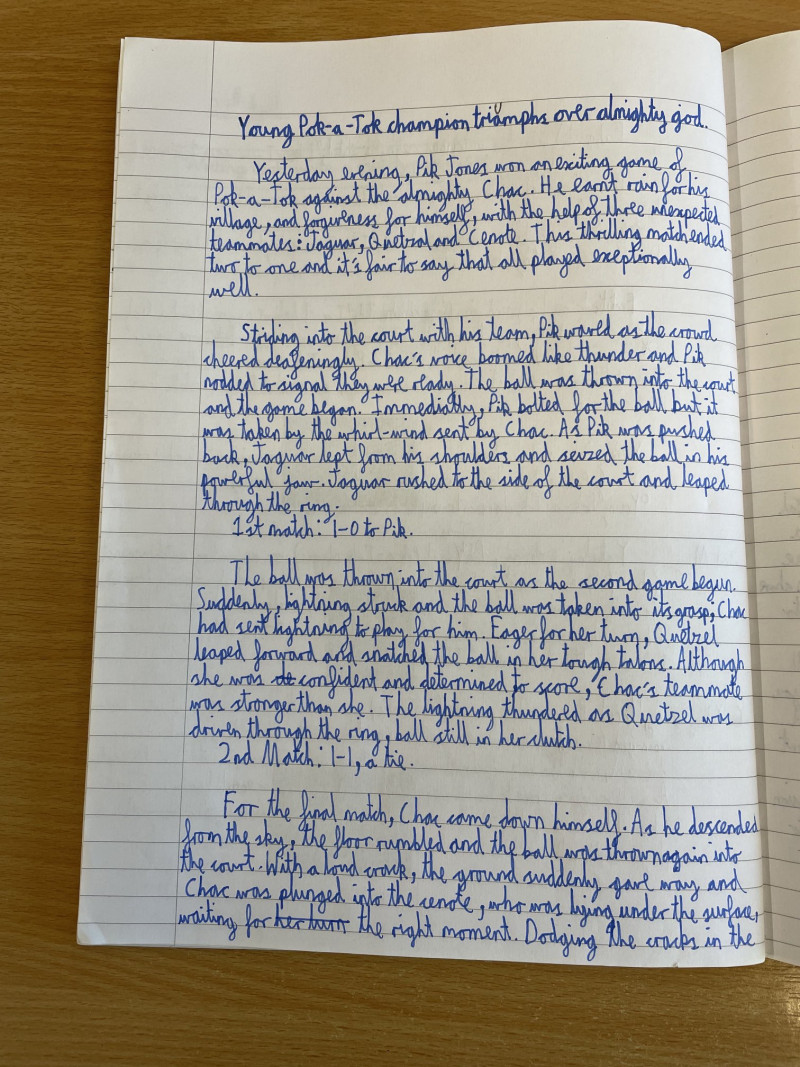 Young Pok-a-Tok champion triumphs over almighty god.
Yesterday evening, Pik Jones won an exciting game of
Pok-a-Tok against the almighty Chac. He earnt rain for his
village, and forgiveness for himself, with the help of three unexpected
teammates: Jaguar, Quetzal and Cenote. This thrilling match ended
two to one and it's fair to say that all played exceptionally
well.
Striding into the court with his team, Pik waved as the crowd
cheered deafeningly. Chac's voice boomed like thunder and Pik
nodded to signal they were ready. The ball was thrown into the court
and the game began. Immediatly, Pik bolted for the ball but it
was taken by the whirl-wind sent by Chac. As Pik was pushed
back, Jaguar lept from his shoulders and seized the ball in his
powerful jaw. Jaguar rushed to the side of the court and leaped
through the ring.
1st match: 1-0 to Pik.
The ball was thrown into the court as the second game begun.
Suddenly, lightning struck and the ball was taken into its grasp; Chac
had sent lightning to play for him. Eager for her turn, Quetzel
leaped forward and snatched the ball in her tough talons. Although
she was de confident and determined to score, Chac's teammate
was stronger than she. The lightning thundered as Quetzel was
driven through the ring, ball still in her clutch.
2nd Match: 1-1, a tie.
For the final match, Chac came down himself. As he descended
from the sky, the floor rumbled and the ball was thrown again into
the court. With a loud crack, the ground suddenly gave way and
Chac was plunged into the cenote, who was lying under the surface,
waiting for her turn the right moment. Dodging the cracks in the